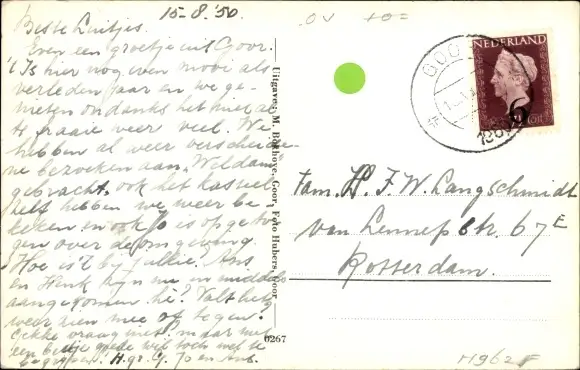 15-8.'50
Beste Luitjes.
Even een groetje uit Goor.
't Is hier nog even mooi als
verleden jaar en we ge-
nieten ondanks het niet al
te fraaie weer veel. We
hebben al weer verscheide-
ne bezoeken aan „Weldam"
gebracht, ook het kasteel
zelf hebben we weer be-
keken en ook Jo is opgeto-
gen over de omgeving.
Hoe is 't bij jullie. Ans
en Henk zijn nu in middels
aangekomen hè? Valt het
weer zien mee of tegen?
vraag niet? maar met
een beetje goede wil toch wel te
begrijpen. H. gr. Jo en Ant.
Uitgave: M. Bokhove, Goor, Foto Hubers, Goor
6267
GOOR
NEDERLAND
6
Fam. H. F. W. Langschmidt
van Lennepstr. 67E
Rotterdam.